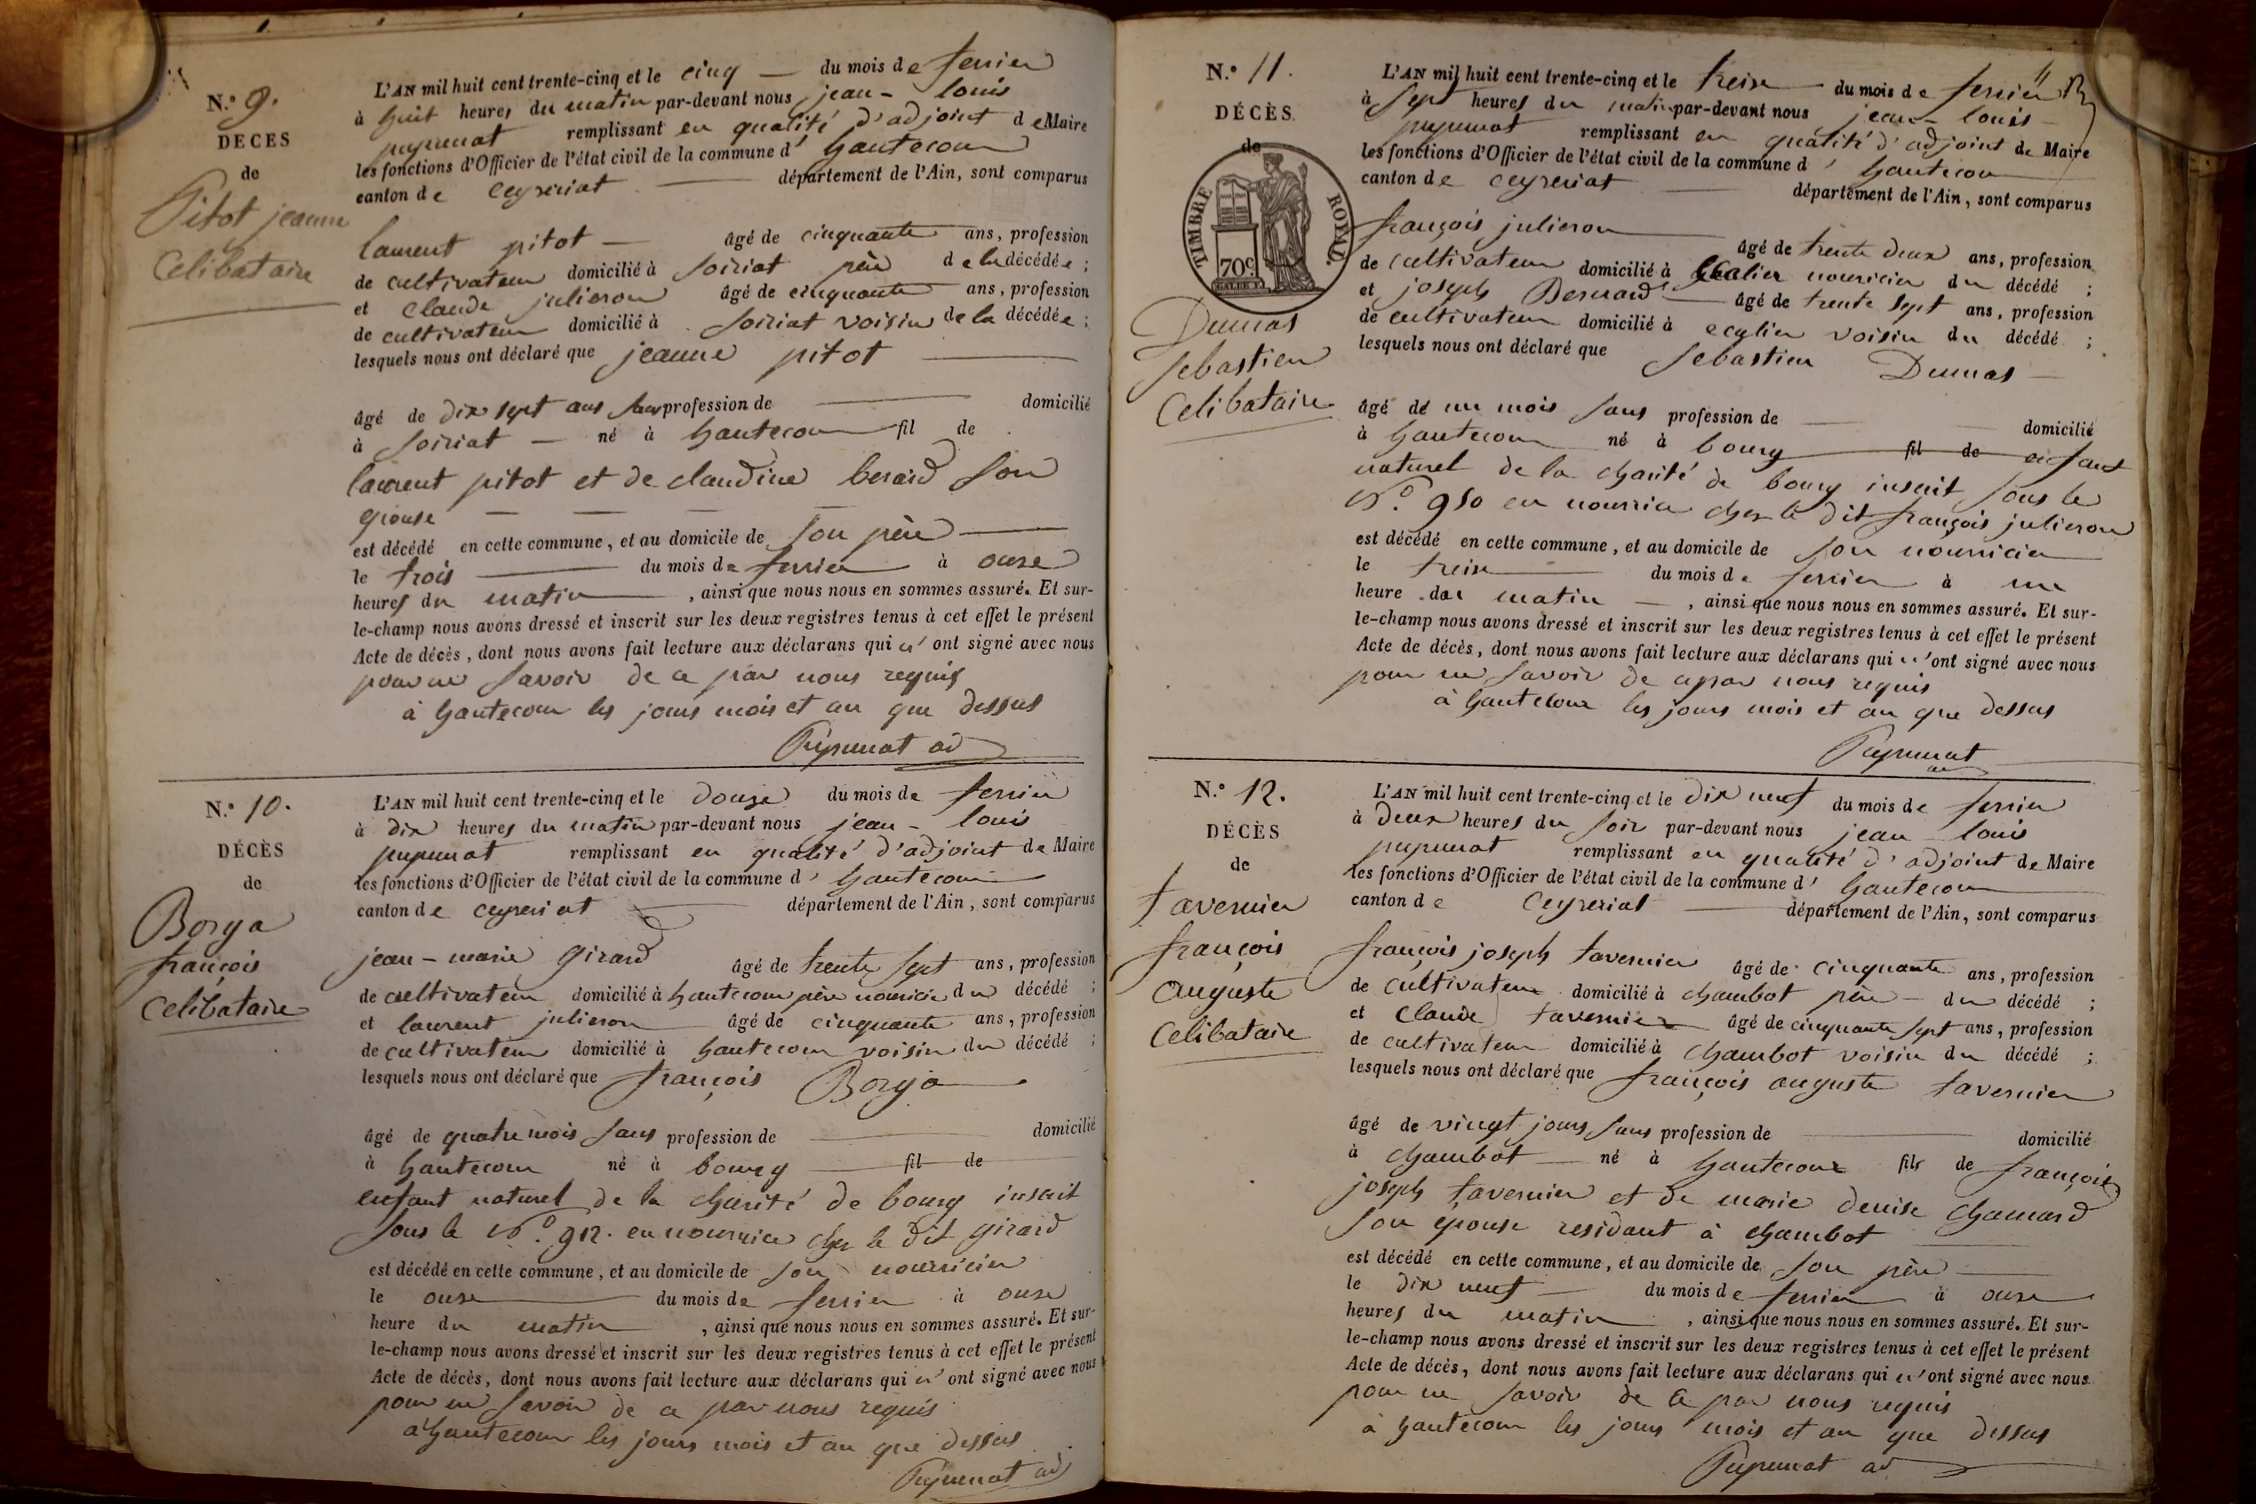 N.º 9.
DÉCÈS
de
Pitot jeanne
Celibataire
L'AN mil huit cent trente-cinq et le cinq du mois de fevrier
à huit heures du matin par-devant nous jean-louis
pupunat remplissant en qualité d'adjoint de Maire
les fonctions d'Officier de l'état civil de la commune d'hautecour
canton de ceyzeriat département de l'Ain, sont comparus
laurent pitot âgé de cinquante ans, profession
de cultivateur domicilié à soiriat père de la décédée ;
et claude julieron âgé de cinquante ans, profession
de cultivateur domicilié à soiriat voisin de la décédée ;
lesquels nous ont déclaré que jeanne pitot
âgé de dix sept ans sans profession de domicilié
à soiriat né à hautecour fil de
laurent pitot et de claudine berard son
epouse
est décédé en cette commune, et au domicile de son père
le trois du mois de fevrier à onze
heures du matin, ainsi que nous nous en sommes assuré. Et sur-
le-champ nous avons dressé et inscrit sur les deux registres tenus à cet effet le présent
Acte de décès, dont nous avons fait lecture aux déclarans qui n'ont signé avec nous
pour ne savoir de ce par nous requis
à hautecour les jours mois et an que dessus
Pupunat ad
N.º 10.
DÉCÈS
de
Borga
françois
Celibataire
L'AN mil huit cent trente-cinq et le douze du mois de fevrier
à dix heures du matin par-devant nous jean-louis
pupunat remplissant en qualité d'adjoint de Maire
les fonctions d'Officier de l'état civil de la commune d'hautecour
canton de ceyzeriat département de l'Ain, sont comparus
jean-marie girard âgé de trente sept ans, profession
de cultivateur domicilié à hautecour père nouricier du décédé ;
et laurent julieron âgé de cinquante ans, profession
de cultivateur domicilié à hautecour voisin du décédé ;
lesquels nous ont déclaré que françois Borga
âgé de quatre mois sans profession de domicilié
à hautecour né à bourg fil de
enfant naturel de la charité de bourg inscrit
sous le N.º 912. en nourrice chez le dit girard
est décédé en cette commune, et au domicile de son nourricier
le onze du mois de fevrier à onze
heure du matin, ainsi que nous nous en sommes assuré. Et sur-
le-champ nous avons dressé et inscrit sur les deux registres tenus à cet effet le présent
Acte de décès, dont nous avons fait lecture aux déclarans qui n'ont signé avec nous
pour ne savoir de ce par nous requis
à hautecour les jours mois et an que dessus
Pupunat ad
11
N.º 11.
DÉCÈS
de
TIMBRE ROYAL.
70c
Dumas
Sebastien
Celibataire
L'AN mil huit cent trente-cinq et le treize du mois de fevrier
à sept heures du matin par-devant nous jean-louis
pupunat remplissant en qualité d'adjoint de Maire
les fonctions d'Officier de l'état civil de la commune d'hautecour
canton de ceyzeriat département de l'Ain, sont comparus
françois julieron âgé de trente deux ans, profession
de cultivateur domicilié à nouricier du décédé ;
et joseph Bernard âgé de trente sept ans, profession
de cultivateur domicilié à voisin du décédé ;
lesquels nous ont déclaré que Sebastien Dumas
âgé de un mois sans profession de domicilié
à hautecour né à bourg fil de enfant
naturel de la charité de bourg inscrit sous le
N.º 950 en nourrice chez le dit françois julieron
est décédé en cette commune, et au domicile de son nouricier
le treize du mois de fevrier à un
heure du matin, ainsi que nous nous en sommes assuré. Et sur-
le-champ nous avons dressé et inscrit sur les deux registres tenus à cet effet le présent
Acte de décès, dont nous avons fait lecture aux déclarans qui n'ont signé avec nous
pour ne savoir de ce par nous requis
à hautecour les jours mois et an que dessus
Pupunat
ad
N.º 12.
DÉCÈS
de
tavernier
françois
auguste
Celibataire
L'AN mil huit cent trente-cinq et le dix neuf du mois de fevrier
à deux heures du soir par-devant nous jean louis
pupunat remplissant en qualité d'adjoint de Maire
les fonctions d'Officier de l'état civil de la commune d'hautecour
canton de Ceyzeriat département de l'Ain, sont comparus
françois joseph tavernier âgé de cinquante ans, profession
de cultivateur domicilié à chambot père du décédé ;
et Claude tavernier âgé de cinquante sept ans, profession
de cultivateur domicilié à chambot voisin du décédé ;
lesquels nous ont déclaré que françois auguste tavernier
âgé de vingt jours sans profession de domicilié
à chambot né à hautecour fils de françois
joseph tavernier et de marie denise chanard
son épouse residant à chambot
est décédé en cette commune, et au domicile de son père
le dix neuf du mois de fevrier à onze
heures du matin, ainsi que nous nous en sommes assuré. Et sur-
le-champ nous avons dressé et inscrit sur les deux registres tenus à cet effet le présent
Acte de décès, dont nous avons fait lecture aux déclarans qui n'ont signé avec nous
pour ne savoir de ce par nous requis
à hautecour les jours mois et an que dessus
Pupunat ad